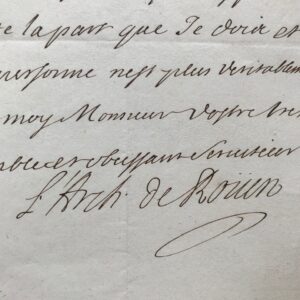 te la part que Je dois et
personne nest plus veritablem
moy Monsieur vostre tres
ble et obeissant serviteur
L'Arch. de Roüen